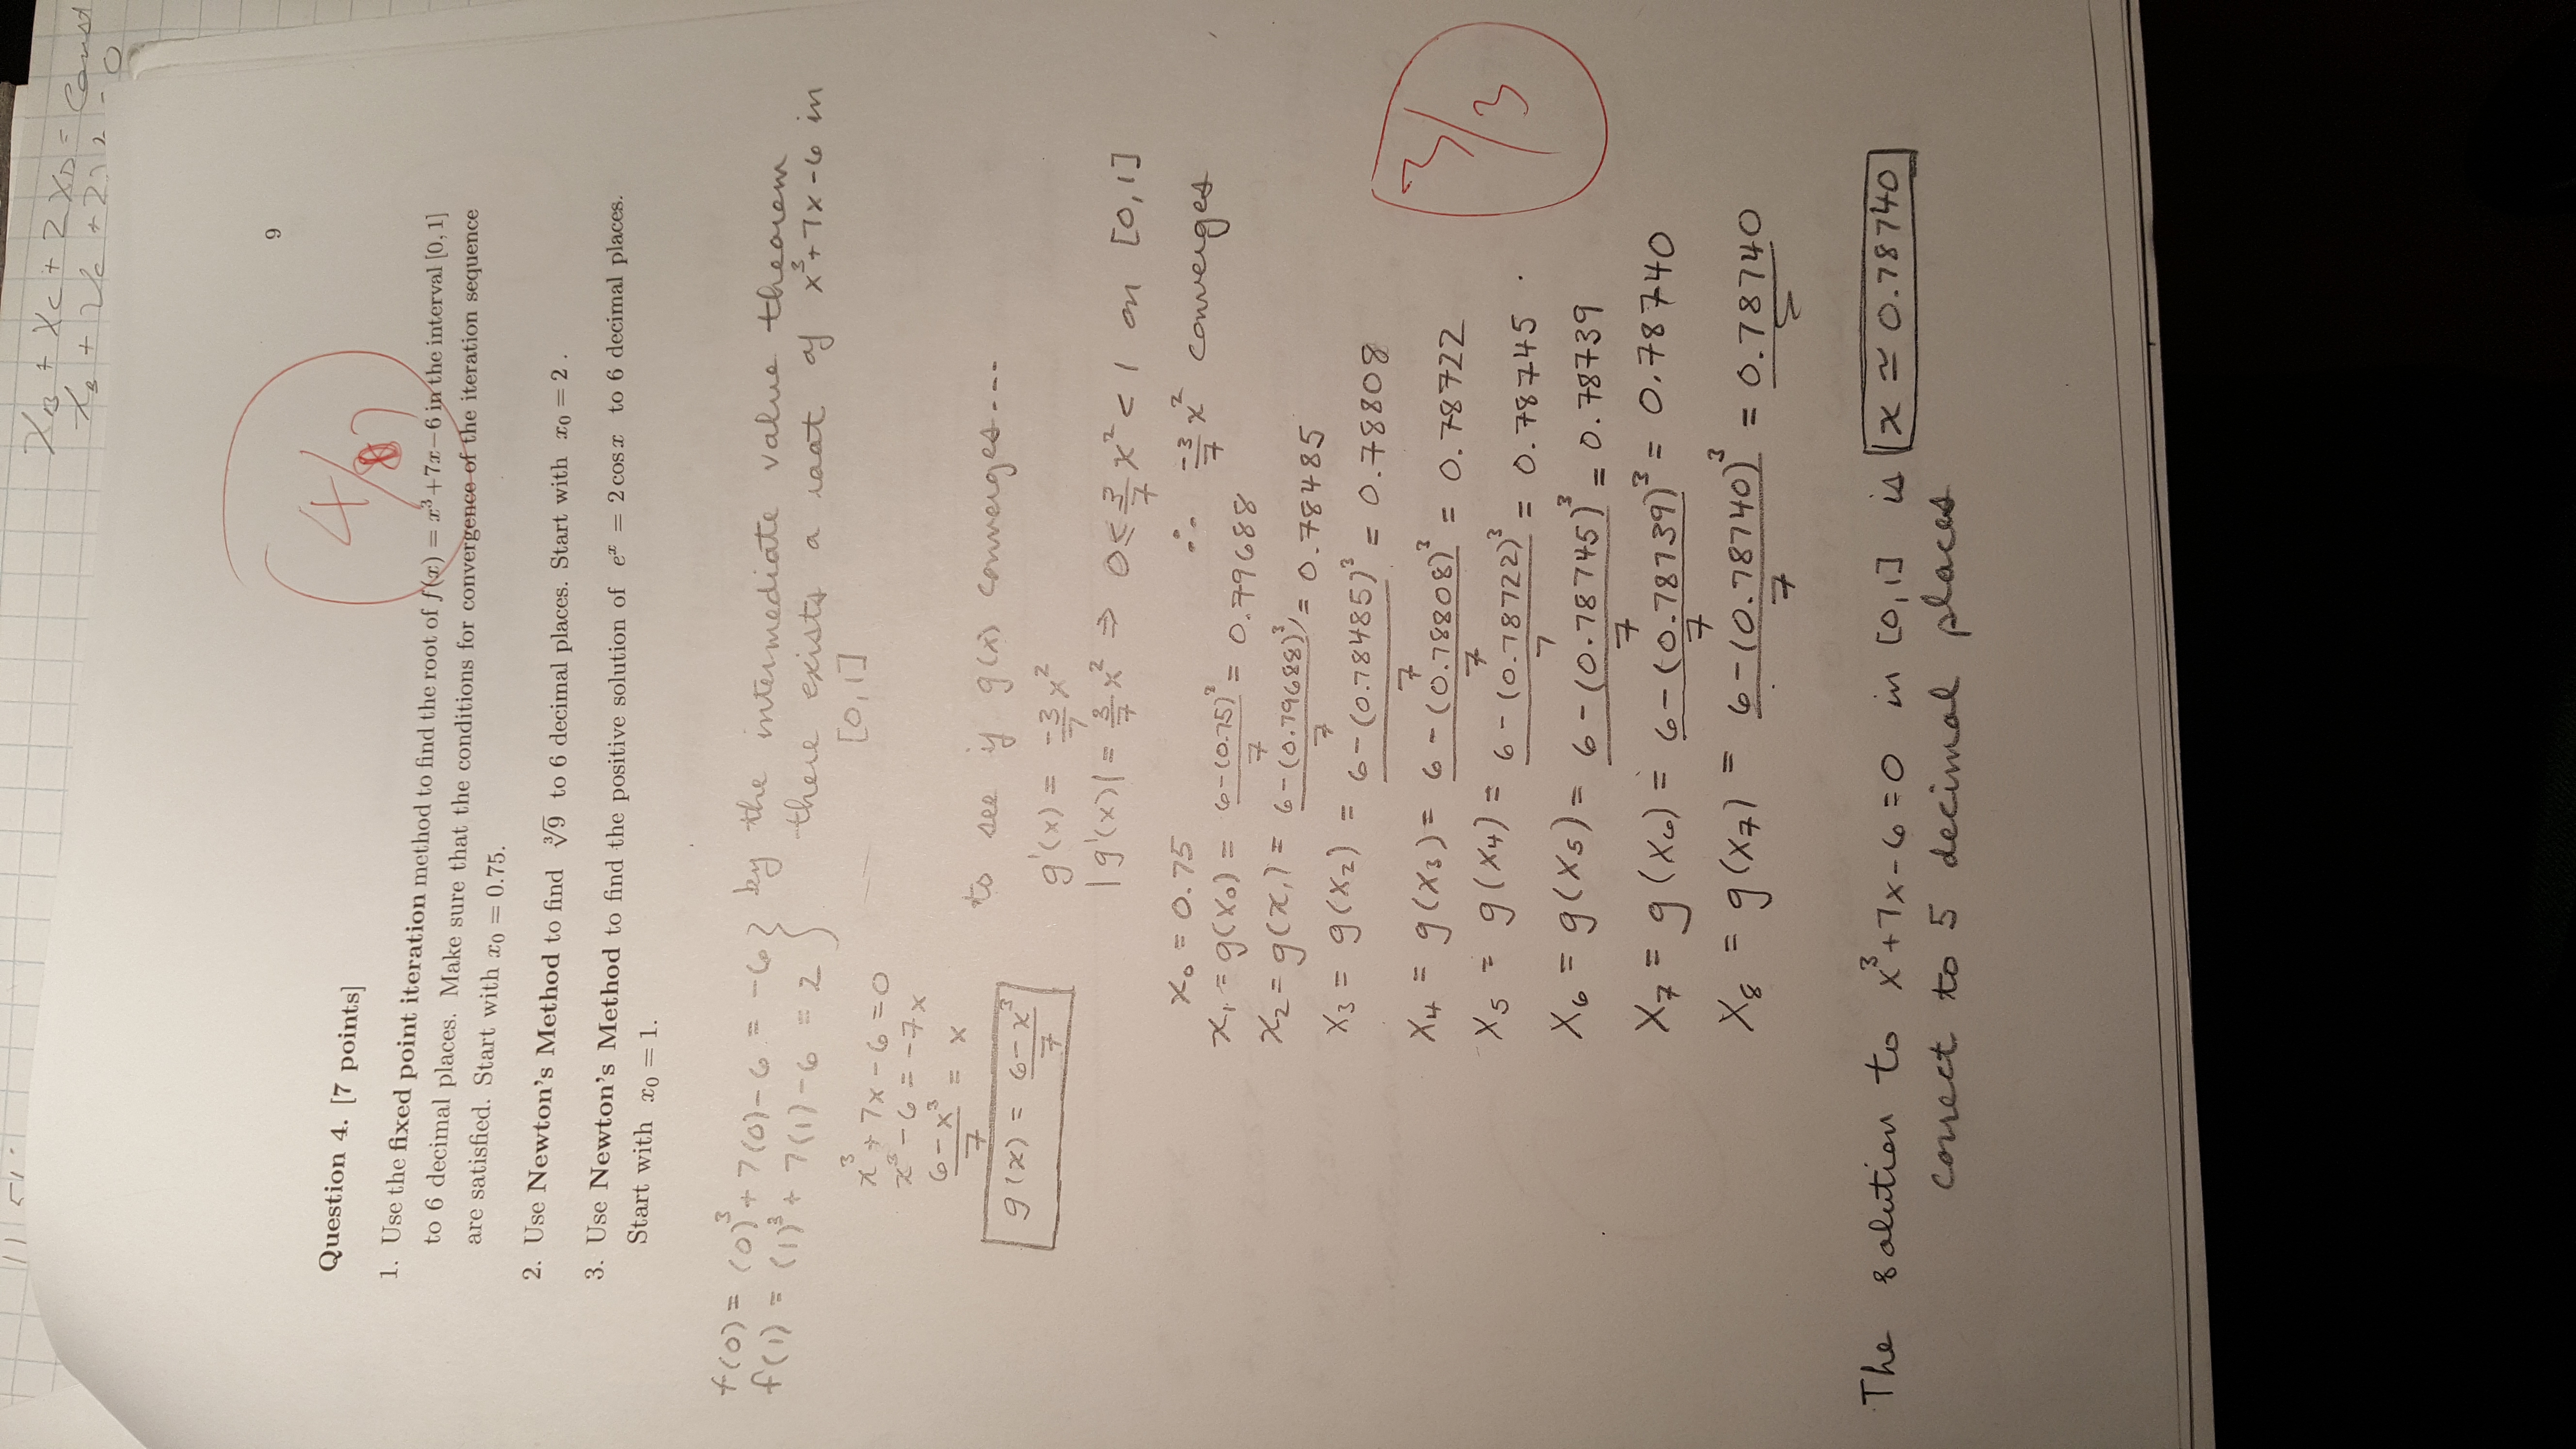 X_B + X_C + 2 X_D = Const
9
4/8
Question 4. [7 points]
1. Use the fixed point iteration method to find the root of f(x) = x³+7x−6 in the interval [0, 1]
to 6 decimal places. Make sure that the conditions for convergence of the iteration sequence
are satisfied. Start with x₀ = 0.75.
2. Use Newton's Method to find ∛9 to 6 decimal places. Start with x₀ = 2 .
3. Use Newton's Method to find the positive solution of eˣ = 2 cos x to 6 decimal places.
Start with x₀ = 1.
f(0) = (0)³ + 7(0) − 6 = −6 } by the intermediate value theorem
f(1) = (1)³ + 7(1) − 6 = 2 } there exists a root of x³ + 7x − 6 in
[0,1]
x³ + 7x − 6 = 0
x³ − 6 = −7x
(6 − x³)/7 = x
g(x) = (6 − x³)/7
to see if g(x) converges....
g'(x) = −3/7 x²
|g'(x)| = 3/7 x² ⇒ 0 ≤ 3/7 x² < 1 on [0,1]
∴ −3/7 x² converges
x₀ = 0.75
x₁ = g(x₀) = (6−(0.75)³)/7 = 0.79688
x₂ = g(x₁) = (6−(0.79688)³)/7 = 0.78485
x₃ = g(x₂) = (6−(0.78485)³)/7 = 0.78808
3/3
x₄ = g(x₃) = (6−(0.78808)³)/7 = 0.78722
x₅ = g(x₄) = (6−(0.78722)³)/7 = 0.78745
x₆ = g(x₅) = (6−(0.78745)³)/7 = 0.78739
x₇ = g(x₆) = (6−(0.78739)³)/7 = 0.78740
x₈ = g(x₇) = (6−(0.78740)³)/7 = 0.78740
The solution to x³+7x−6=0 in [0,1] is x ≃ 0.78740
correct to 5 decimal places